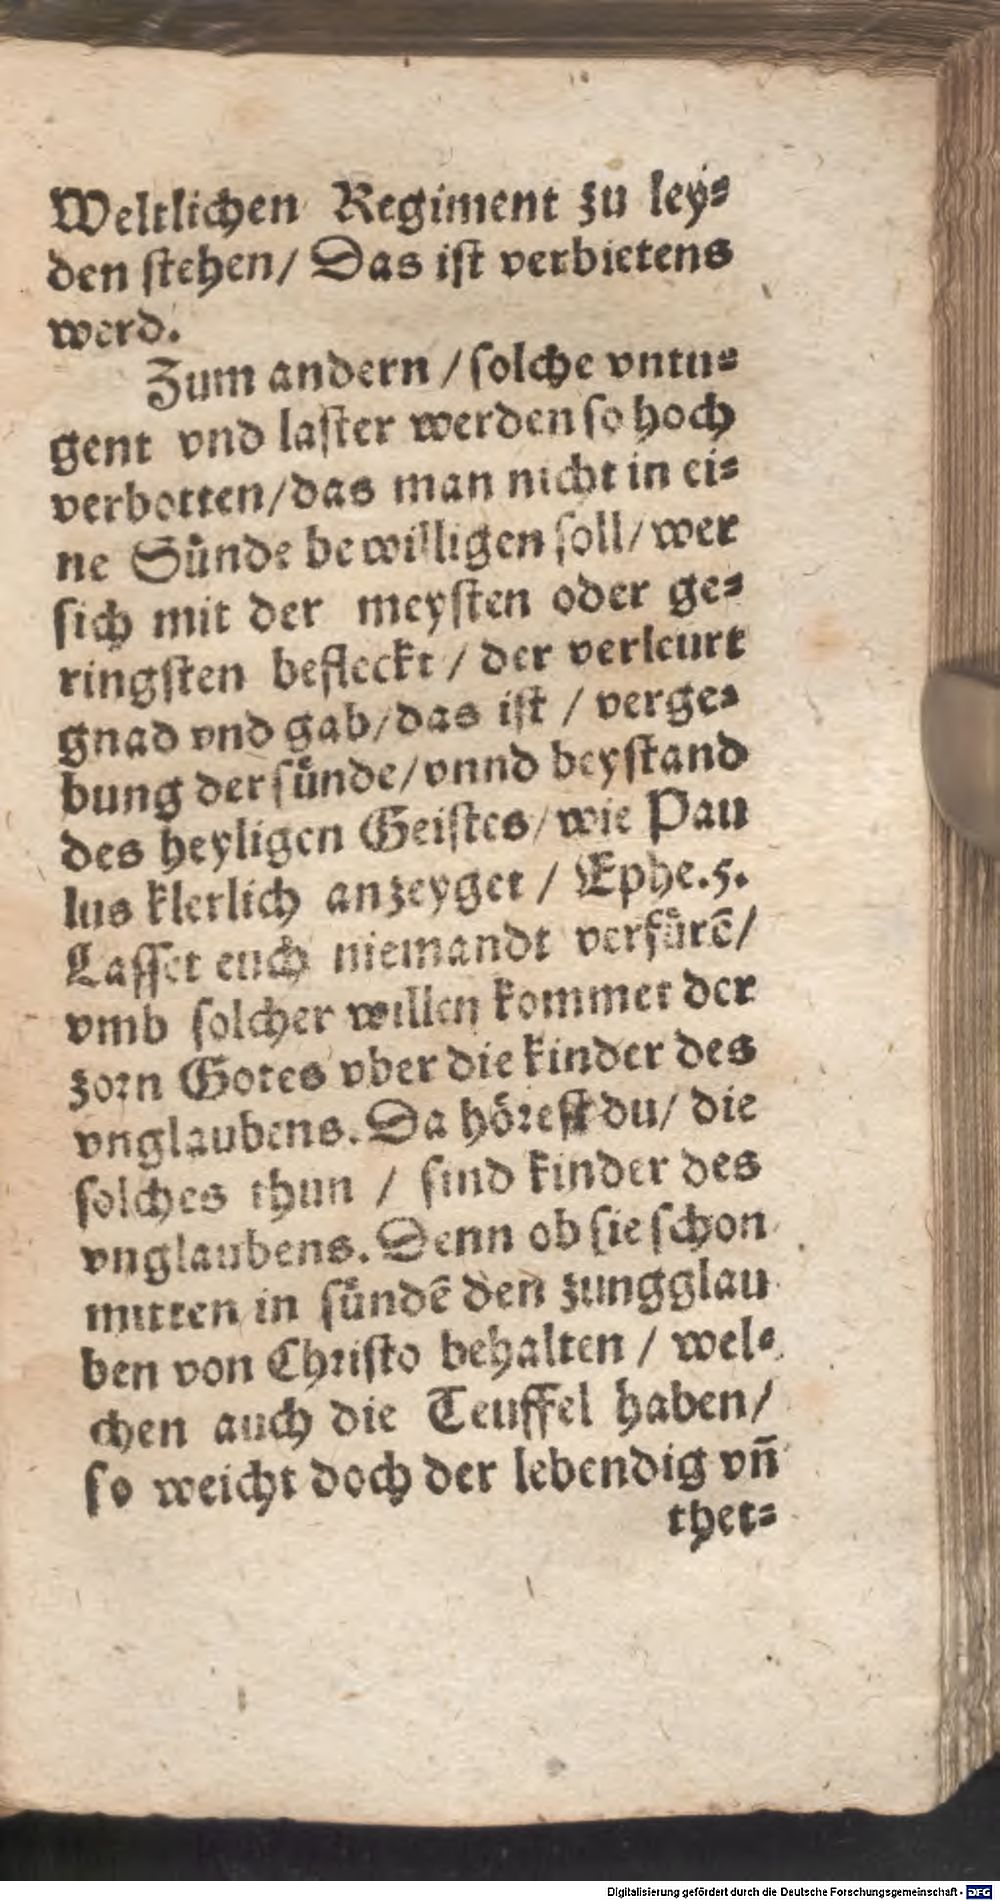 Weltlichen Regiment zu ley⸗
den ſtehen/ Das iſt verbietens
werd.
Zum andern / ſolche vntu⸗
gent vnd laſter werden ſo hoch
verbotten/das man nicht in ei⸗
ne Suͤnde bewilligen ſoll/ wer
ſich mit der meyſten oder ge⸗
ringsten befleckt / der verleurt
gnad vnd gab/das iſt / verge⸗
bung der ſuͤnde/vnnd beyſtand
des heyligen Geiſtes/ wie Pau
lus klerlich anzeyget / Ephe.5.
Laſſet euch niemandt verfuͤrē/
vmb ſolcher willen kommet der
zorn Gotes vber die kinder des
vnglaubens. Da hoͤreſt du/ die
ſolches thun / ſind kinder des
vnglaubens. Denn ob ſie ſchon
mitten in ſuͤndē den zungglau
ben von Chriſto behalten / wel⸗
chen auch die Teuffel haben/
ſo weicht doch der lebendig vn̄
thet⸗
Digitalisierung gefördert durch die Deutsche Forschungsgemeinschaft - DFG